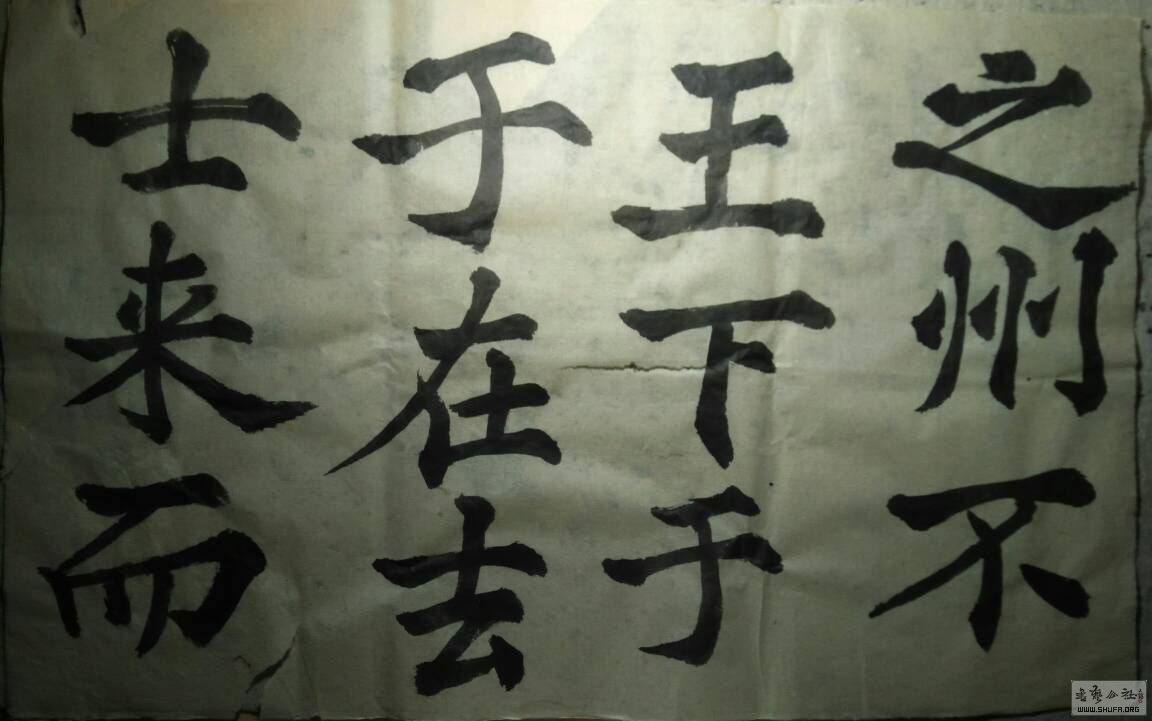 之州不
王下于
于在去
士来而
WWW.SHUFA.ORG